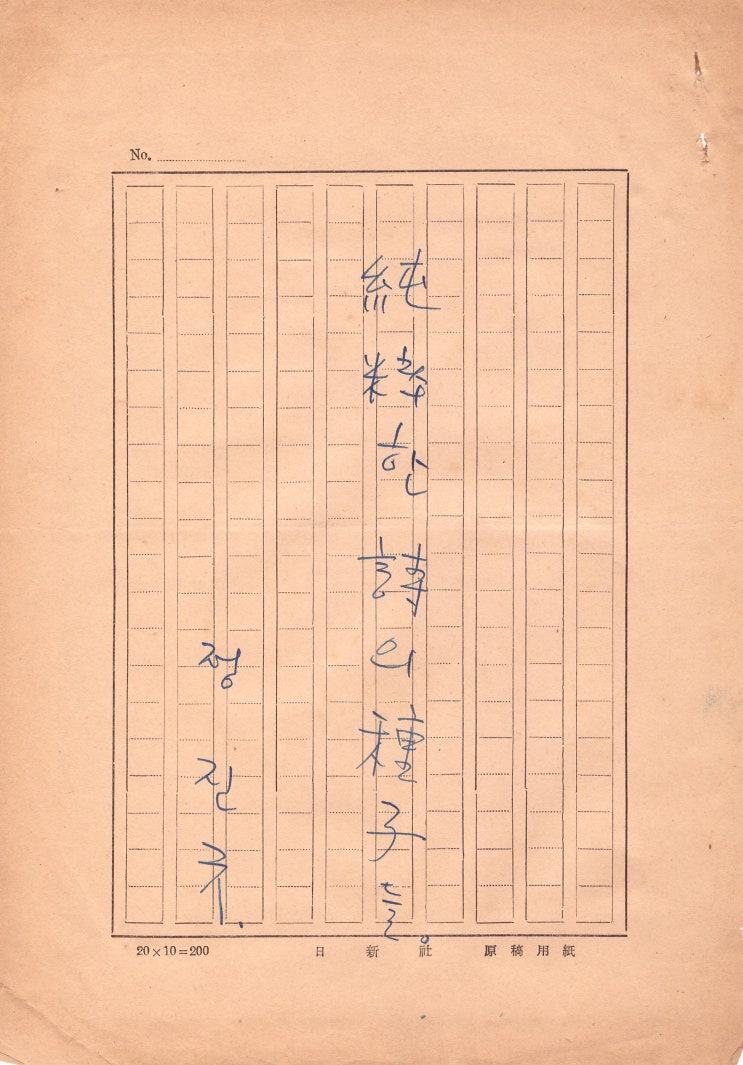 No.
純粹한 詩의 種子들。
정진규.
20×10=200 日新社 原稿用紙